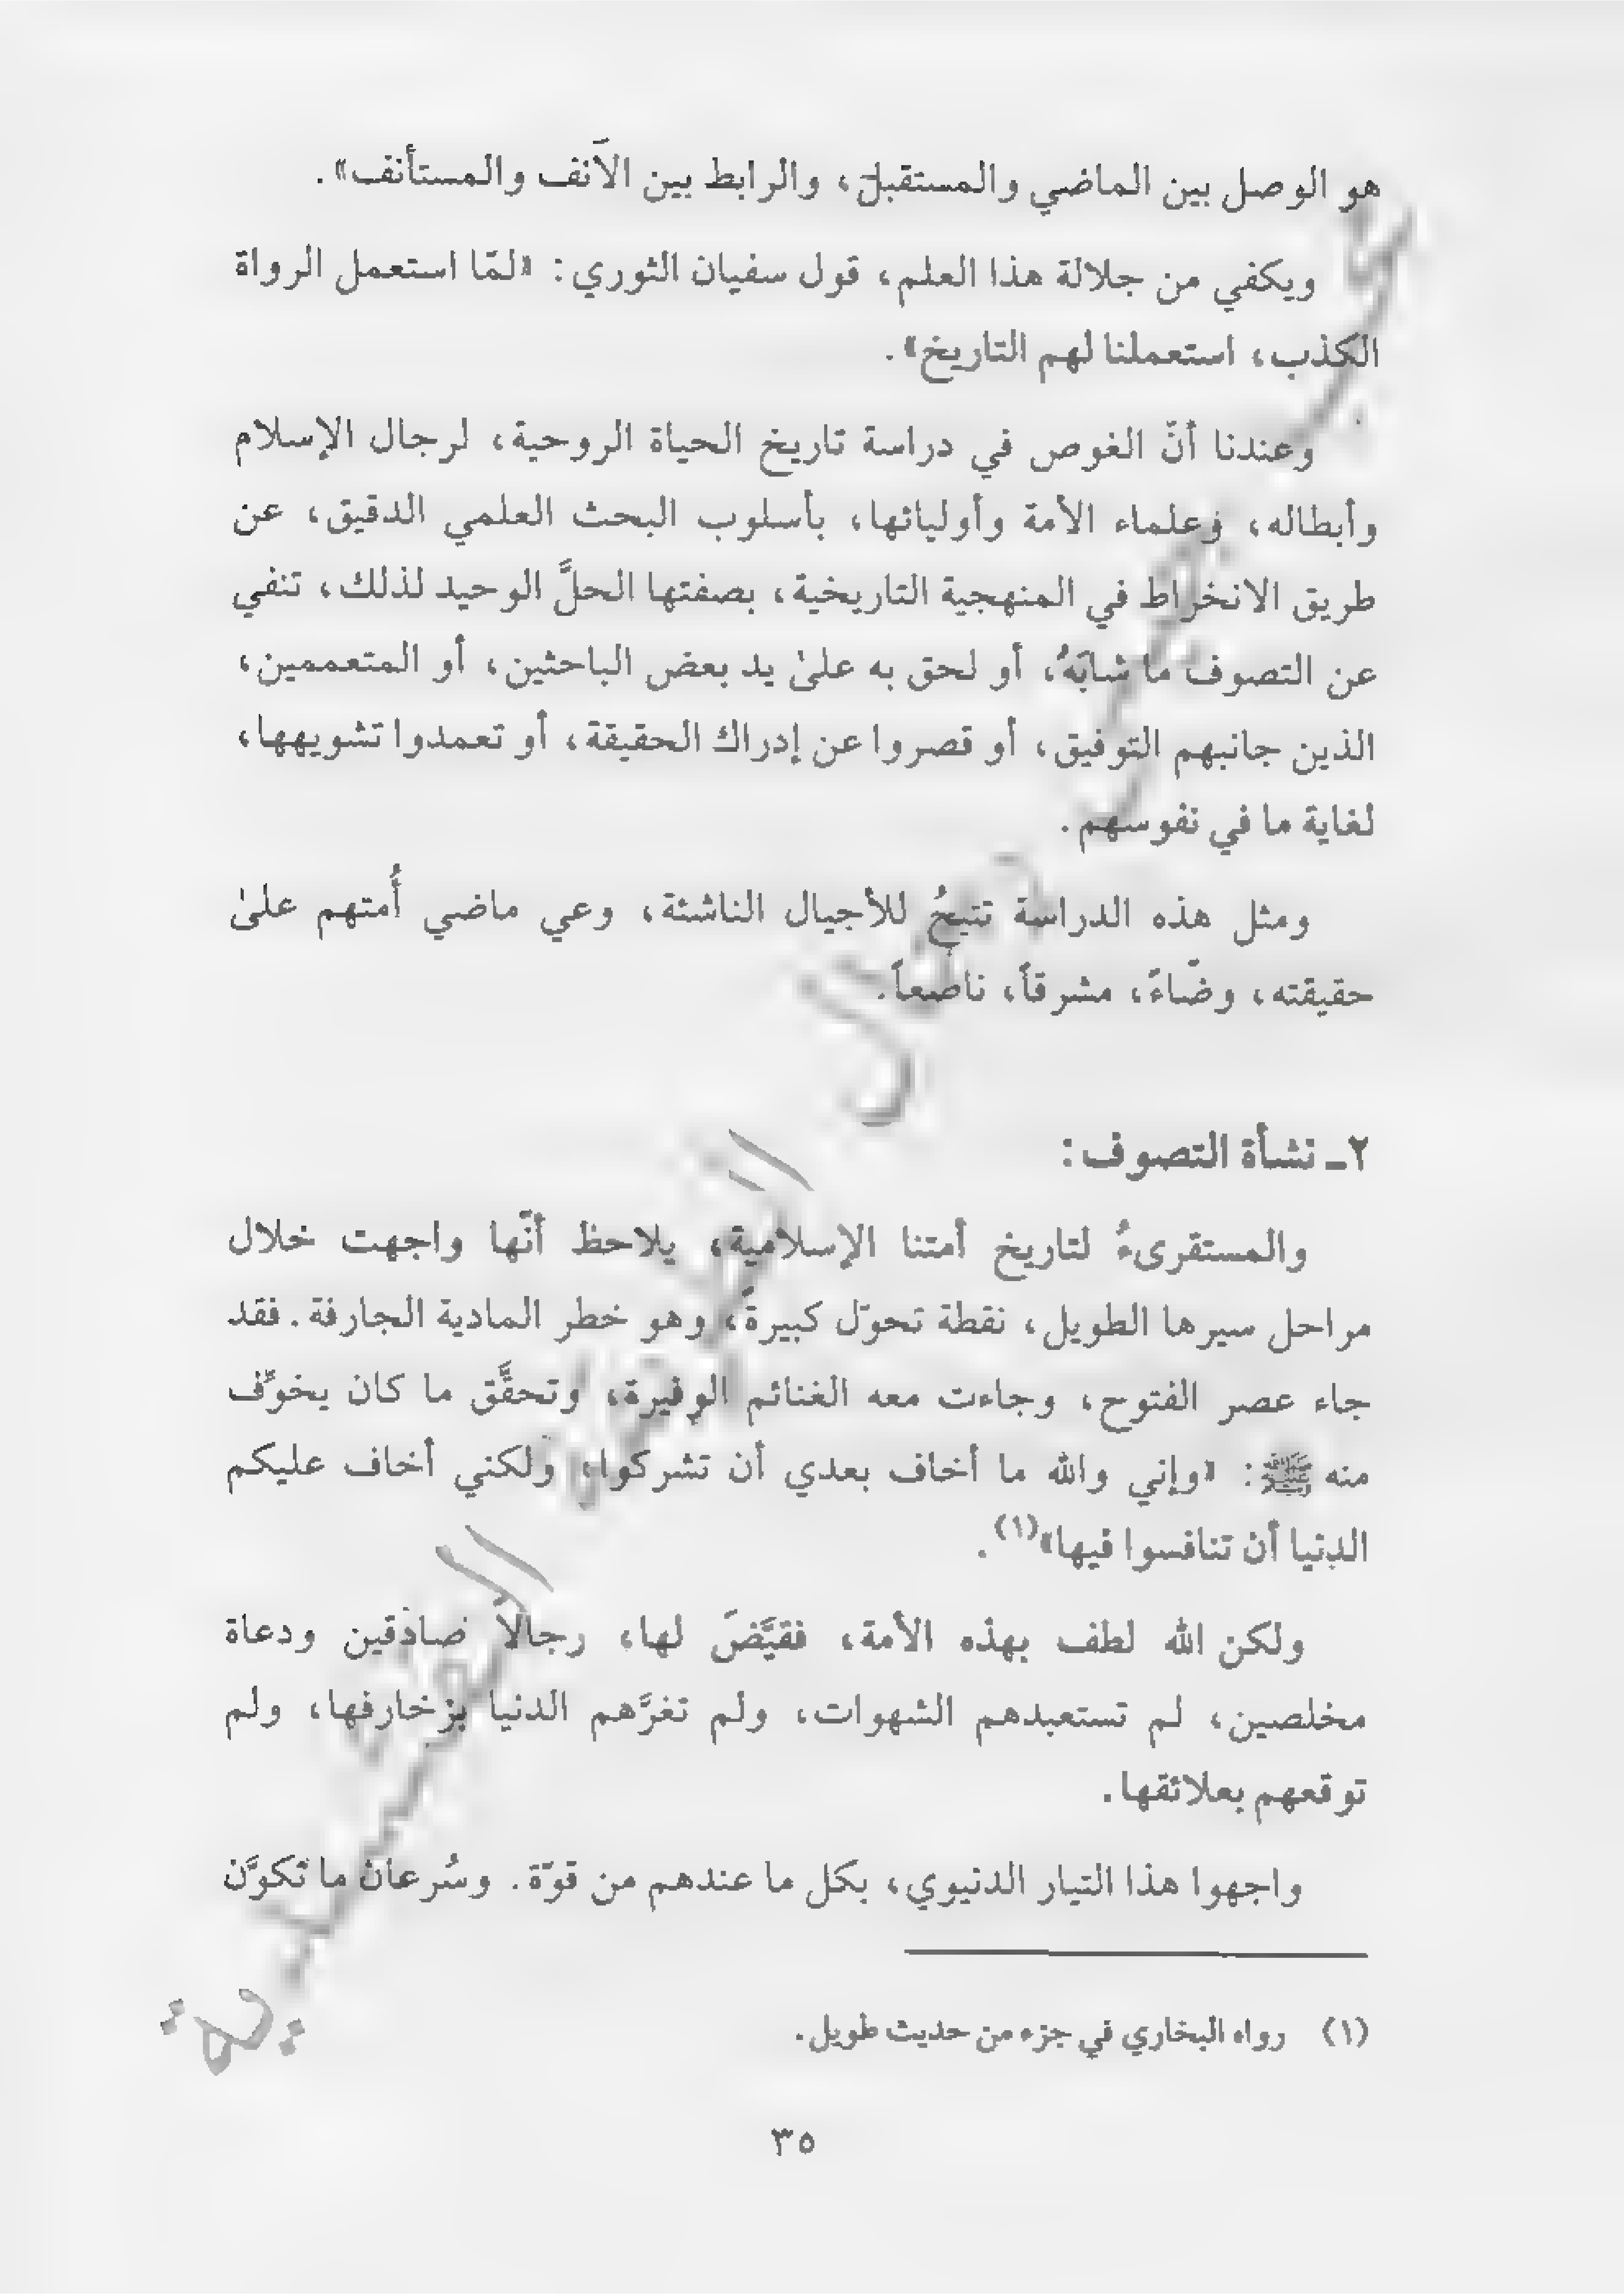 هو الوصل بين الماضي والمستقبل، والرابط بين الآنف والمستأنف».
ويكفي من جلالة هذا العلم، قول سفيان الثوري: «لمّا استعمل الرواة
الكذب، استعملنا لهم التاريخ».
وعندنا أنّ الغوص في دراسة تاريخ الحياة الروحية، لرجال الإسلام
وأبطاله، وعلماء الأمة وأوليائها، بأسلوب البحث العلمي الدقيق، عن
طريق الانخراط في المنهجية التاريخية، بصفتها الحلَّ الوحيد لذلك، تنفي
عن التصوف ما شابَهُ، أو لحق به علىٰ يد بعض الباحثين، أو المتعممين،
الذين جانبهم التوفيق، أو قصروا عن إدراك الحقيقة، أو تعمدوا تشويهها،
لغاية ما في نفوسهم.
ومثل هذه الدراسة تتيحُ للأجيال الناشئة، وعي ماضي أُمتهم علىٰ
حقيقته، وضّاءً، مشرقاً، ناصعاً.
٢ـ نشأة التصوف:
والمستقرىءُ لتاريخ أمتنا الإسلامية، يلاحظ أنّها واجهت خلال
مراحل سيرها الطويل، نقطة تحوّل كبيرةً، وهو خطر المادية الجارفة. فقد
جاء عصر الفتوح، وجاءت معه الغنائم الوفيرة، وتحقَّق ما كان يخوِّف
منه ﷺ: «وإني والله ما أخاف بعدي أن تشركوا، ولكني أخاف عليكم
الدنيا أن تنافسوا فيها»(١).
ولكن الله لطف بهذه الأمة، فقيَّضَ لها، رجالاً صادقين ودعاة
مخلصين، لم تستعبدهم الشهوات، ولم تغرَّهم الدنيا بزخارفها، ولم
توقعهم بعلائقها.
واجهوا هذا التيار الدنيوي، بكل ما عندهم من قوّة. وسُرعان ما تكوَّن
(١) رواه البخاري في جزء من حديث طويل.
٣٥